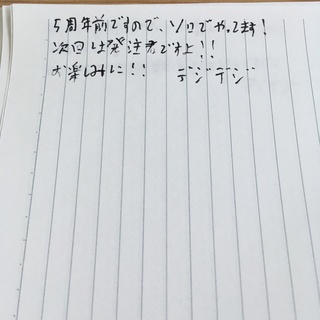 5周年前ですので、ソロでやってます!
次回は発注者ですよ!!
お楽しみに!! デジデジ